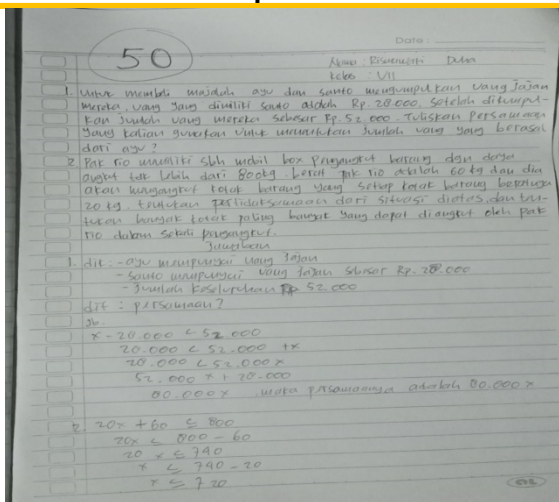 Date :
50
Nama : Risanuwati Dutra
Kelas : VII
1. Untuk membeli majalah ayu dan santo mengumpulkan uang jajan
mereka, uang yang dimiliki santo adalah Rp. 28.000. setelah dikumpul-
kan Jumlah uang mereka sebesar Rp. 52.000. Tuliskan Persamaan
yang kalian gunakan untuk menentukan Jumlah uang yang berasal
dari ayu?
2. Pak rio memiliki sbh mobil box Pengangkut barang dgn daya
angkut tak lebih dari 800 kg. berat pak rio adalah 60 kg dan dia
akan mengangkut kotak barang yang setiap kotak barang beratnya
20 kg. tentukan pertidaksamaan dari situasi diatas, dan ten-
tukan banyak kotak paling banyak yang dapat di angkut oleh pak
rio dalam sekali pengangkut.
Jawaban
1. dik : - ayu mempunyai uang Jajan
- santo mempunyai uang Jajan sebesar Rp. 28.000
- Jumlah keseluruhan 52.000
dit : persamaan?
Jb.
x - 28.000 < 52.000
20.000 < 52.000 +x
28.000 < 52.000x
52.000 x + 28.000
80.000x maka persamaannya adalah 80.000x
2. 20x + 60 ≤ 800
20x ≤ 800 - 60
20 x ≤ 740
x ≤ 740 - 20
x ≤ 720